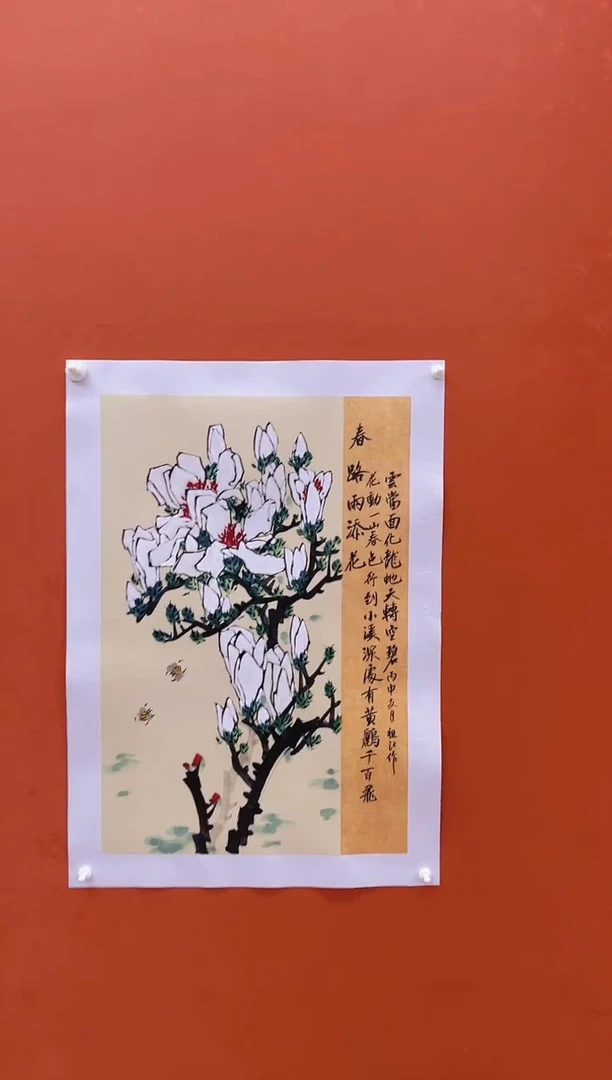 春路雨添花
花動一山春色行到小溪深處有黃鸝千百飛
雲當面化龍虵夭轉空碧丙申月作